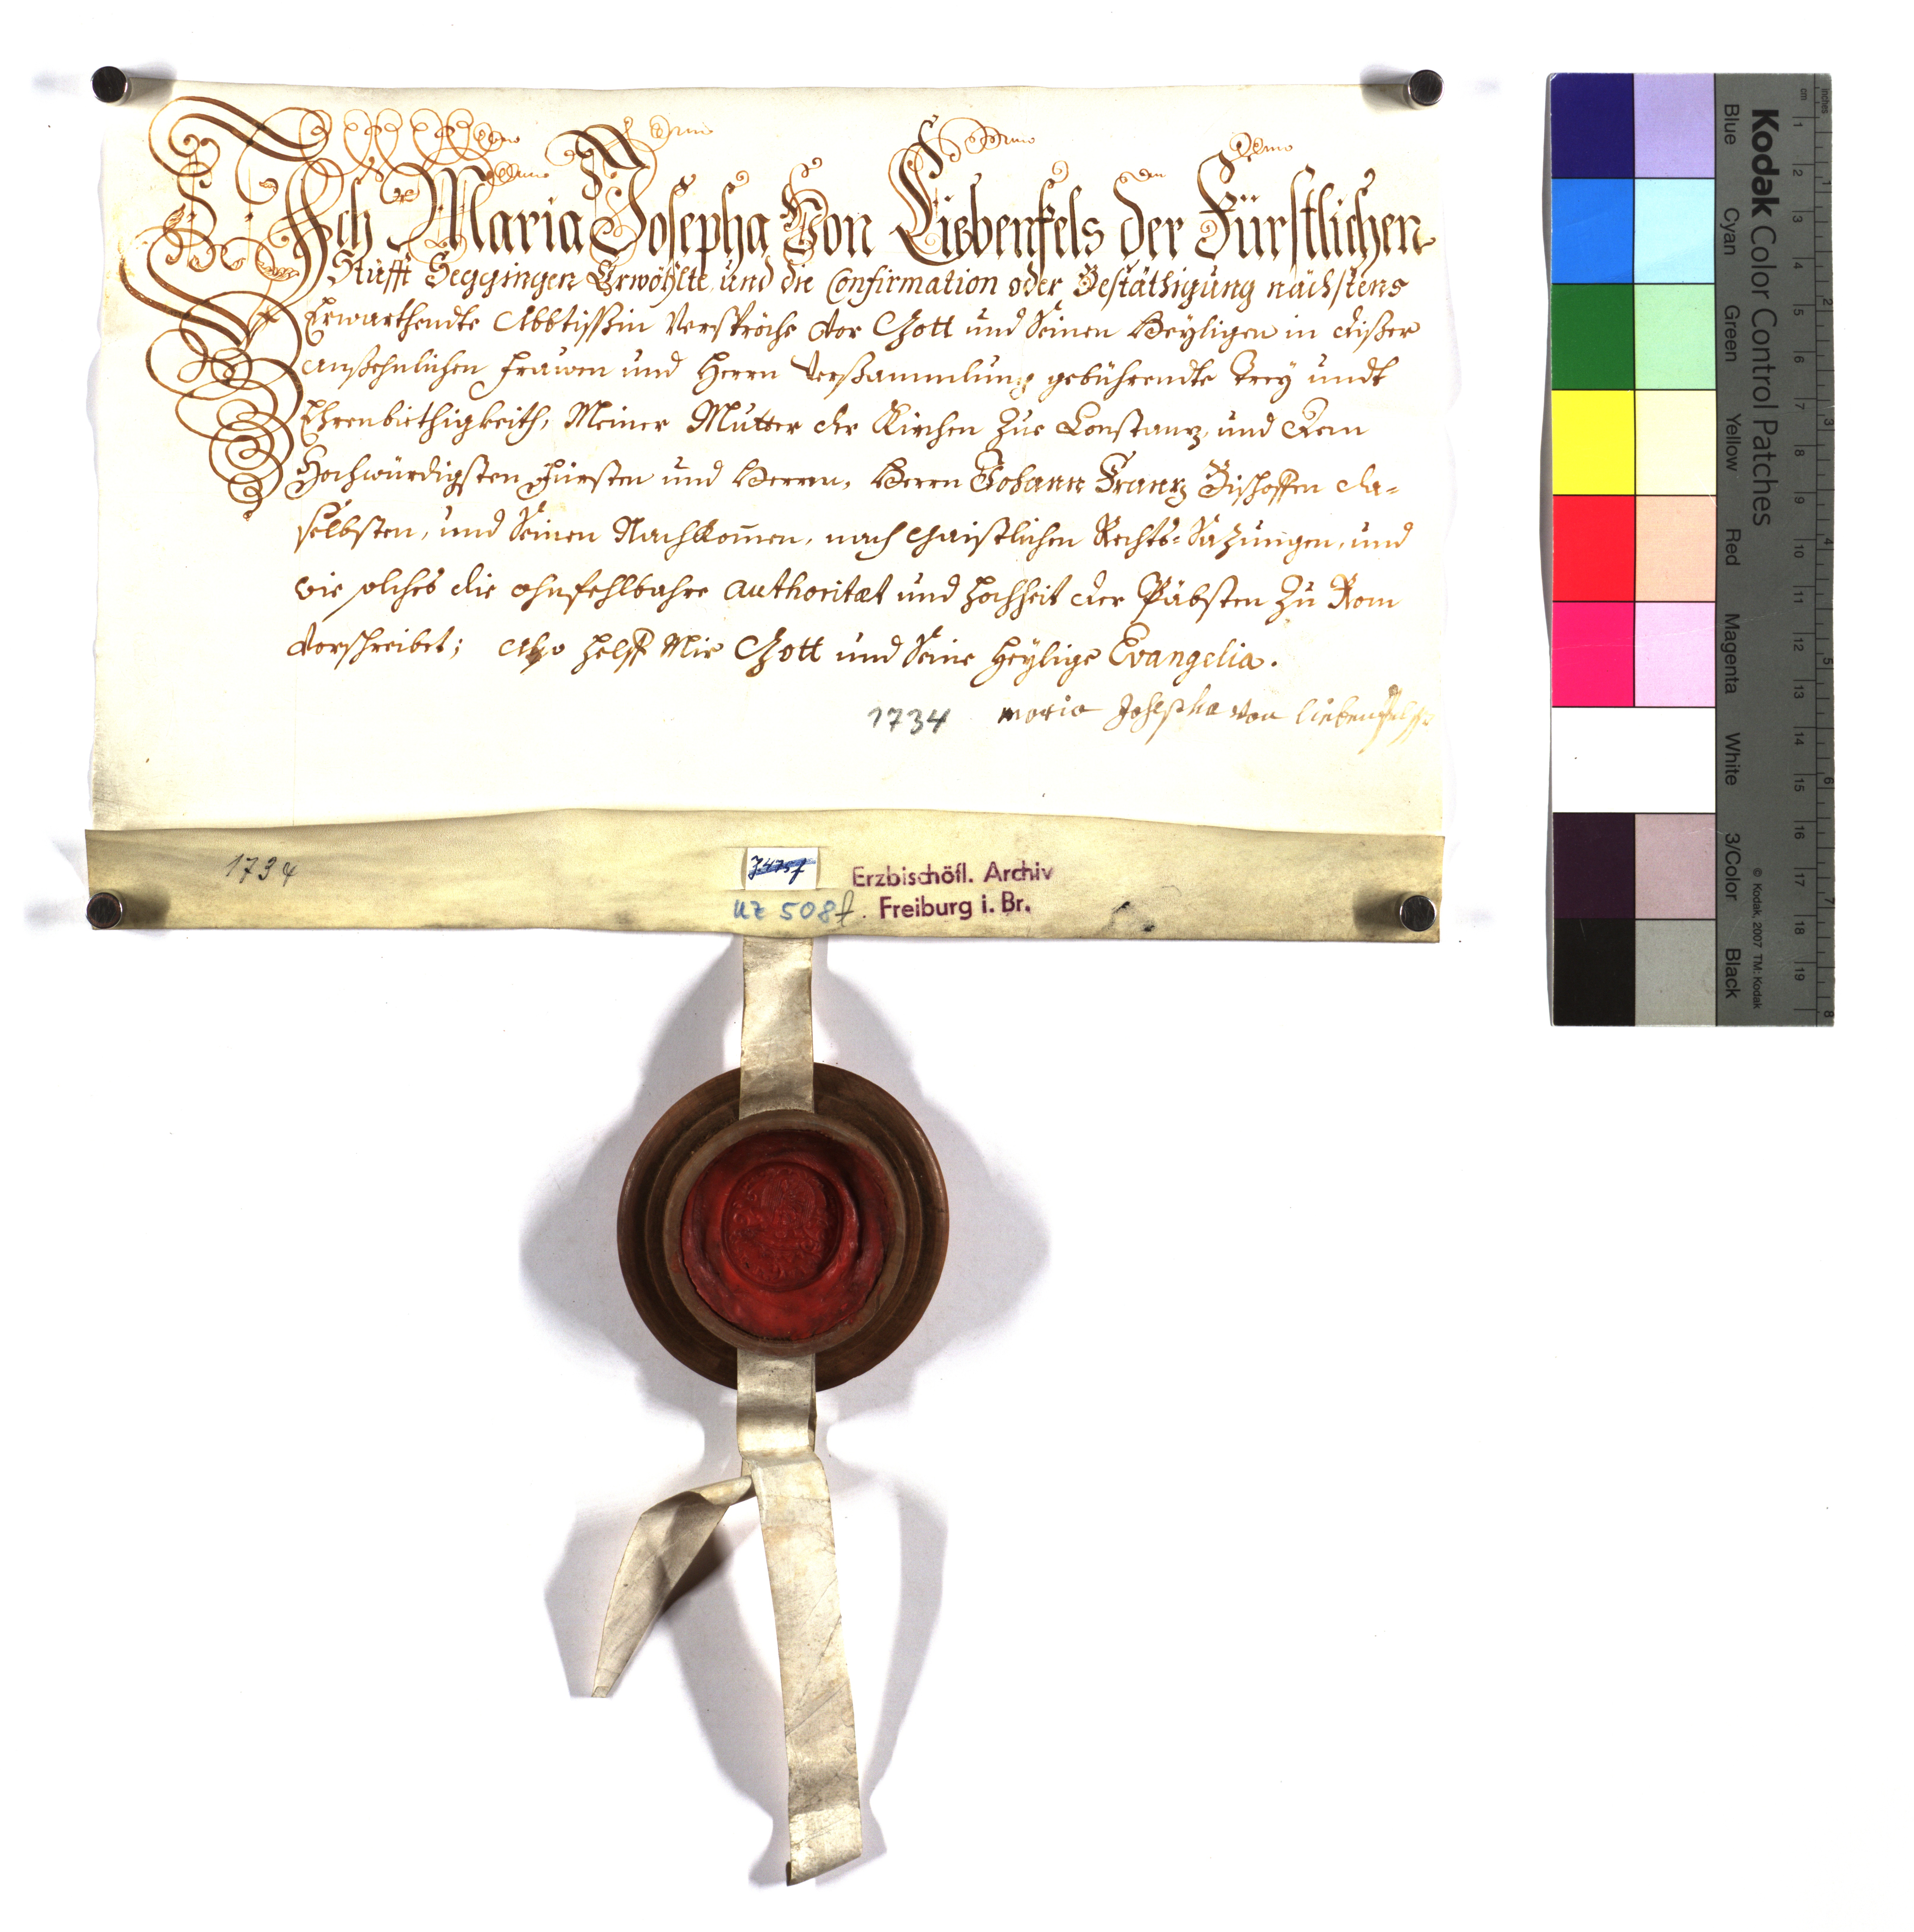 Ich Maria Josepha Von Liebenfels der Fürstlichen
Stüfft Seggingen Erwöhlte, und die Confirmation oder Bestäthigung nächstens
Erwarthendte Abbtissin Verspröche vor Gott und Seinen Heyligen in dißer
ansehnlichen Frauen und Herrn Verßammlung gebührendte Trey undt
Ehrenbiethigkeith, Meiner Mutter der Kirchen Zue Constanz, und dem
Hochwürdigsten Fürsten und Herrn, Herrn Johann Franz Bischoffen da-
selbsten, und Seinen Nachkom̅en, nach Gaistlichen Rechts-Sazungen, und
wie solches die ohnfehlbahre authoritæt und Hochheit der Päbsten Zu Rom
vorschreibet; Also helff Mir Gott und Seine Heylige Evangelia.
1734 Maria Josepha von liebenfelß
1734
Erzbischöfl. Archiv
UZ 508f. Freiburg i. Br.
Kodak Color Control Patches
© Kodak, 2007 TM: Kodak
Blue Cyan Green Yellow Red Magenta White 3/Color Black
cm 1 2 3 4 5 6 7 8 9 10 11 12 13 14 15 16 17 18 19
inches 1 2 3 4 5 6 7 8